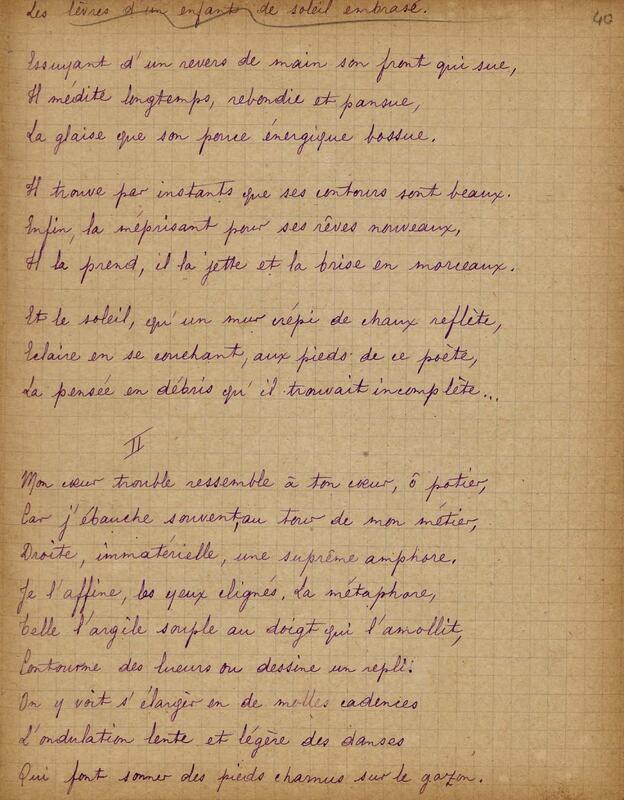 Les lèvres d'un enfant de soleil embrasé.
40
Essuyant d'un revers de main son front qui sue,
Il médite longtemps, rebondie et pansue,
La glaise que son pouce énergique bossue.
Il trouve par instants que ses contours sont beaux.
Enfin, la méprisant pour ses rêves nouveaux,
Il la prend, il la jette et la brise en morceaux.
Et le soleil, qu'un mur crépi de chaux reflète,
Eclaire en se couchant, aux pieds de ce poète,
La pensée en débris qu'il trouvait incomplète...
II
Mon cœur trouble ressemble à ton cœur, ô potier,
Car j'ébauche souvent, au tour de mon métier,
Droite, immatérielle, une suprême amphore.
Je l'affine, les yeux clignés. La métaphore,
Telle l'argile souple au doigt qui l'amollit,
Contourne des lueurs ou dessine un repli:
On y voit s'élargir en de molles cadences
L'ondulation lente et légère des danses
Qui font sonner des pieds charnus sur le gazon.